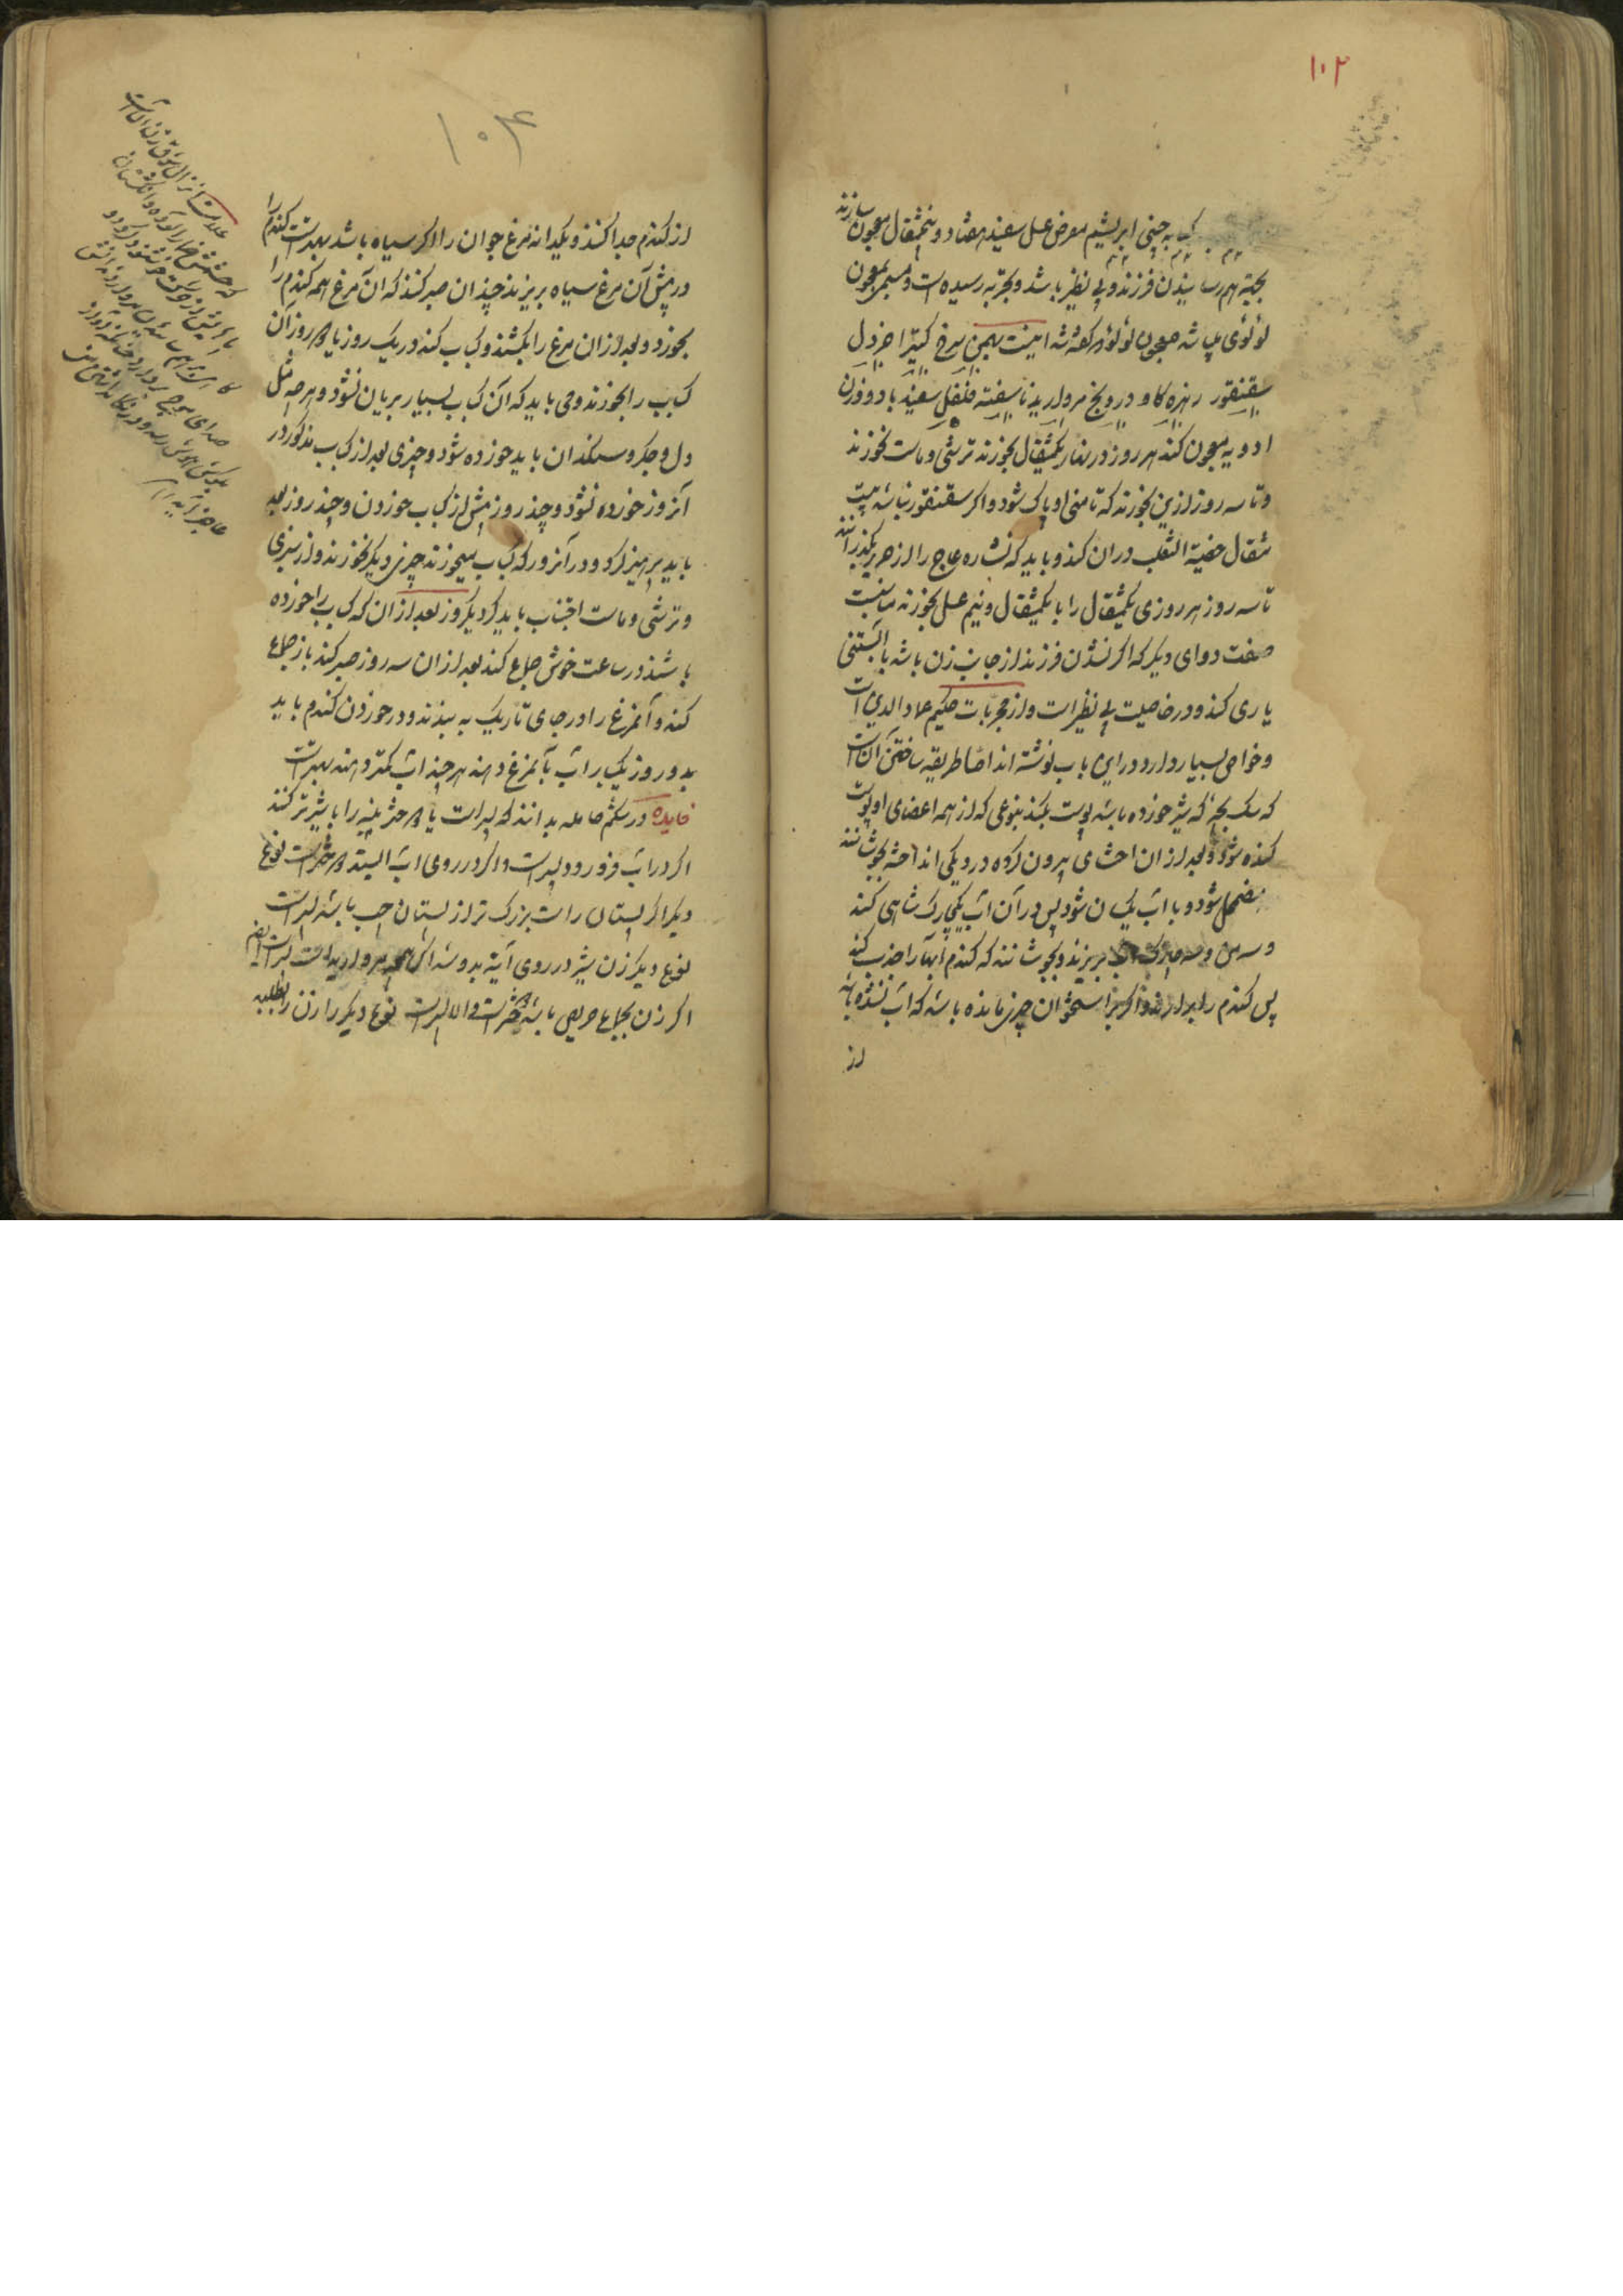 ۱۰۳
کبابه چینی ابریشم مقرض عسل سفید هفتاد و پنجمثقال معجون سازند
بجهة بهم رسانیدن فرزند و بی نظیر باشد و بتجربه رسیده است و مسمی بمعجون
لؤلؤی میباشد معجون لؤلؤ که گفته شد اینست بهمن سرخ کتیرا خردل
سقنقور زهره کاو درونج مروارید ناسفته فلفل سفید با دو وزن
ادویه معجون کنند هر روز در نهار یکمثقال بخورند ترشی و ماست نخورند
و تا سه روز ازین بخورند که تا منی او پاک شود و اگر سقنقور نباشد بیست
مثقال خصیة الثعلب دران کنند و باید که نشاره عاج را از حریر بگذرانند
تا سه روز هر روزی یکمثقال را با یکمثقال و نیم عسل بخورند
صفت دوای دیگر که اگر نشدن فرزند از جانب زن باشد بآبستنی
یاری کند و در خاصیت بی نظیر است و از مجربات حکیم عماد الدین است
و خواص بسیار دارد و دراین باب نوشته اند اما طریقه ساختن آن آنست
که سک بچه که شیر خورده باشد پوست بکنند بنوعی که از همه اعضای او پوست
کنده شود و بعد ازان احشای بیرون کرده در دیگی انداخته بجوشانند
مضمحل شود و با آب یکسان شود پس در آن آب یکچارک شاهی کند
و سه من و سه چارک آب بریزند و بجوشانند که کندم آبها را جذب کند
پس کندم را بردارند و اگر از استخوان چیزی مانده باشد که آب نشده باشد
از
۱۰۴
از کندم جدا کنند و یکدانه مرغ جوان را اگر سیاه باشد بهتر است کندم را
در پیش آن مرغ سیاه بریزند چندان صبر کنند که آن مرغ همه کندم را
بخورد و بعد ازان مرغ را بکشند و کباب کنند در یک روز یا دو روز آن
کباب را بخورند و می باید که آن کباب بسیار بریان نشود و هر چه مثل
دل و جگر و سنگدان باید خورده شود و چیزی بعد از کباب مذکور در
آنروز خورده نشود و چند روز پیش از کباب خوردن و چند روز بعد
باید پرهیز کرد و در آنروز که کباب میخورند چیزی دیگر نخورند و از سبزی
و ترشی و ماست اجتناب باید کرد دیگر روز بعد ازان که کباب را خورده
باشند در ساعت خوش جماع کنند بعد ازان سه روز صبر کنند باز جماع
کنند و آنمرغ را در جای تاریک به بندند و در خوردن کندم باید
بدو روز یکبار آب بآنمرغ دهند هر چند آب کمتر دهند بهتر است
فایده در شکم حامله بدانند که پسر است یا دختر پنبه را با شیر تر کنند
اگر در آب فرو رود پسر است و اگر در روی آب ایستد دختر است نوع
دیگر اگر پستان راست بزرگ تر از پستان چپ باشد پسر است
نوع دیگر زن شیر در روی آینه بدوشد اگر همچو مروارید است پسر است ایضا
اگر زن بجماع حریص باشد دختر است و الا پسر است نوع دیگر را زن را بطلبید
علامت انزال